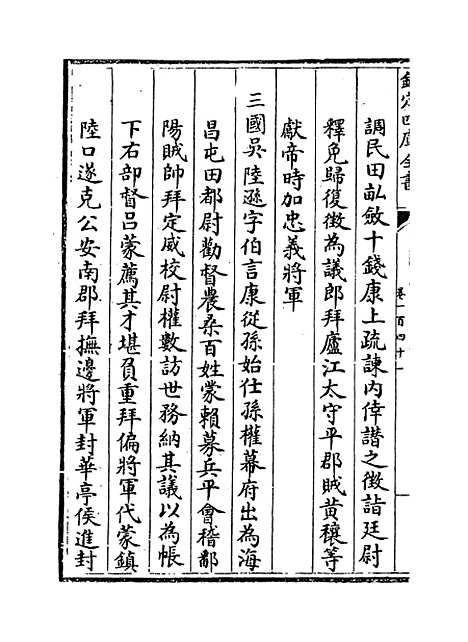 欽定四庫全書
卷一百四十一
調民田畆斂十錢康上疏諫内倖譖之徵詣廷尉
釋免歸復徵為議郎拜廬江太守平郡賊黄穰等
獻帝時加忠義將軍
三國吳陸遜字伯言康從孫始仕孫權幕府出為海
昌屯田都尉勸督農桑百姓蒙賴募兵平會稽鄱
陽賊帥拜定威校尉權數訪世務納其議以為帳
下右部督吕蒙薦其才堪負重拜偏將軍代蒙鎮
陸口遂克公安南郡拜撫邊將軍封華亭侯進封